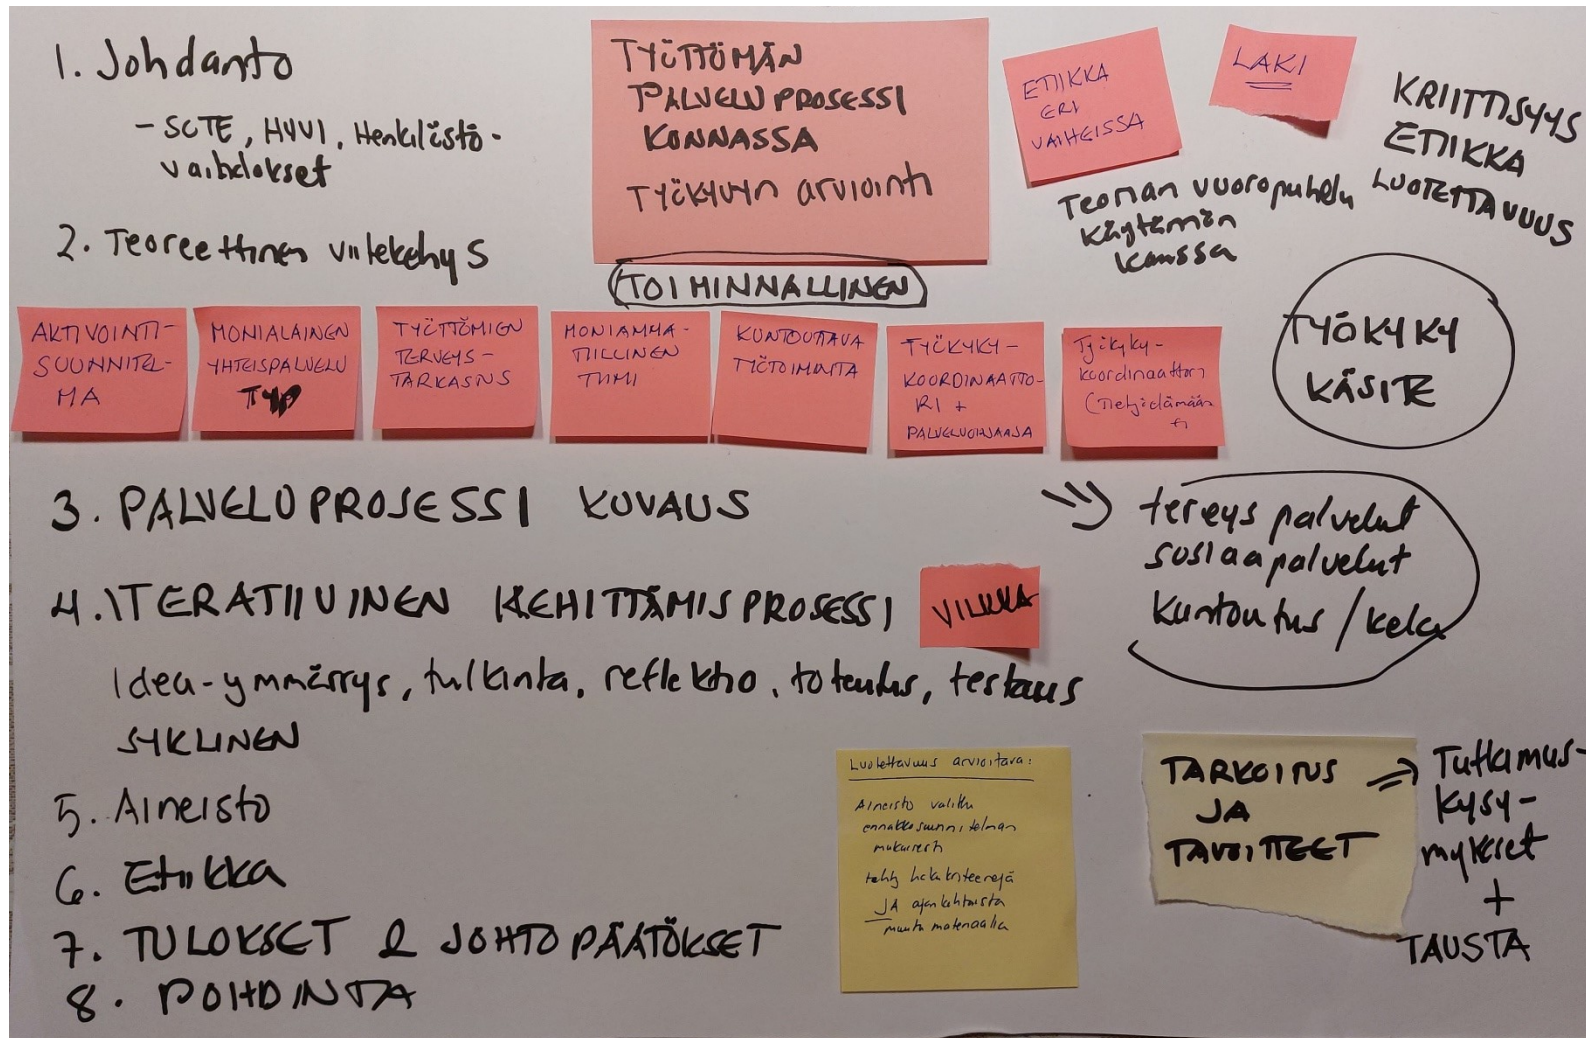 1. Johdanto
- SOTE, HYVI, Henkilöstö-
vaihdokset
2. Teoreettinen viitekehys
TYÖTTÖMÄN
PALVELUPROSESSI
KUNNASSA
TYÖKYVYN arviointi
TOIMINNALLINEN
ETIIKKA
ERI
VAIHEISSA
LAKI
KRIITTISYYS
ETIIKKA
LUOTETTAVUUS
Teorian vuoropuhelu
käytännön
kanssa
AKTIVOINTI-
SUUNNITEL-
MA
MONIALAINEN
YHTEISPALVELU
TYP
TYÖTTÖMIEN
TERVEYS-
TARKASTUS
MONIAMMA-
TILLINEN
TIIMI
KUNTOUTTAVA
TYÖTOIMINTA
TYÖKYKY-
KOORDINAATTO-
RI +
PALVELUOHJAAJA
Työkyky-
koordinaattori
(Tietyöelämään
fi
TYÖKYKY
KÄSITE
3. PALVELUPROSESSI KUVAUS
tereys palvelut
sosiaapalvelut
kuntoutus / kela
4. ITERATIIVINEN KEHITTÄMISPROSESSI
VILKKA
Idea-ymmärrys, tulkinta, reflektio, toteutus, testaus
SYKLINEN
5. Aineisto
6. Etiikka
7. TULOKSET & JOHTOPÄÄTÖKSET
8. POHDINTA
Luotettavuus arvioitava:
Aineisto valittu
ennakkosuunnitelman
mukaisesti
tehty hakukriteerejä
JA ajankohtaista
muuta materiaalia
TARKOITUS
JA
TAVOITTEET
⇒ Tutkimus-
kysy-
mykset
+
TAUSTA